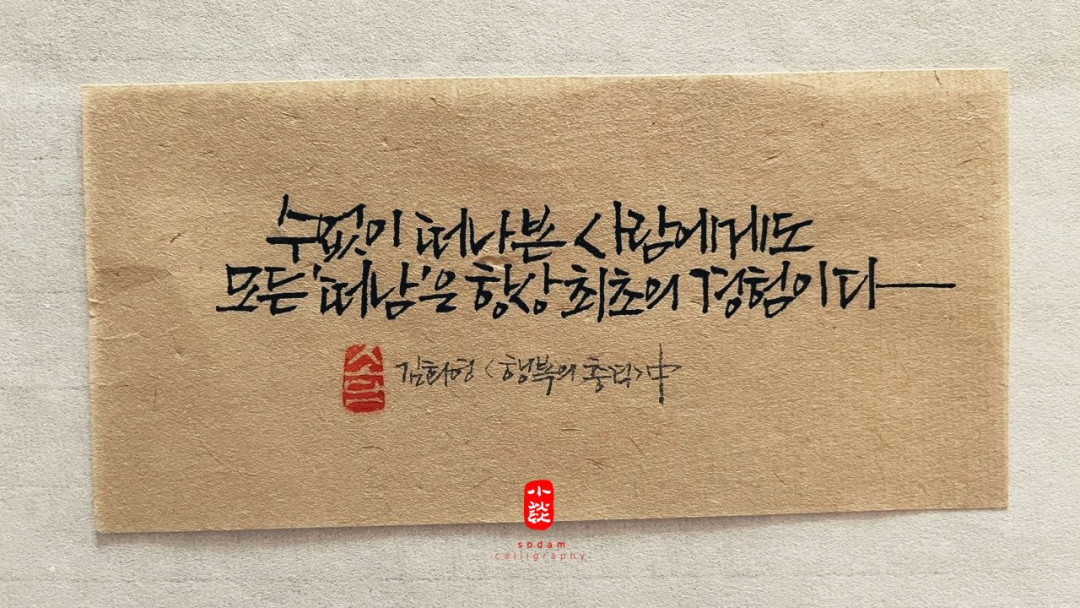 수없이 떠나본 사람에게도
모든 '떠남'은 항상 최초의 경험이다
김화영 <행복의 충격> 中
小談
sodam
calligraphy